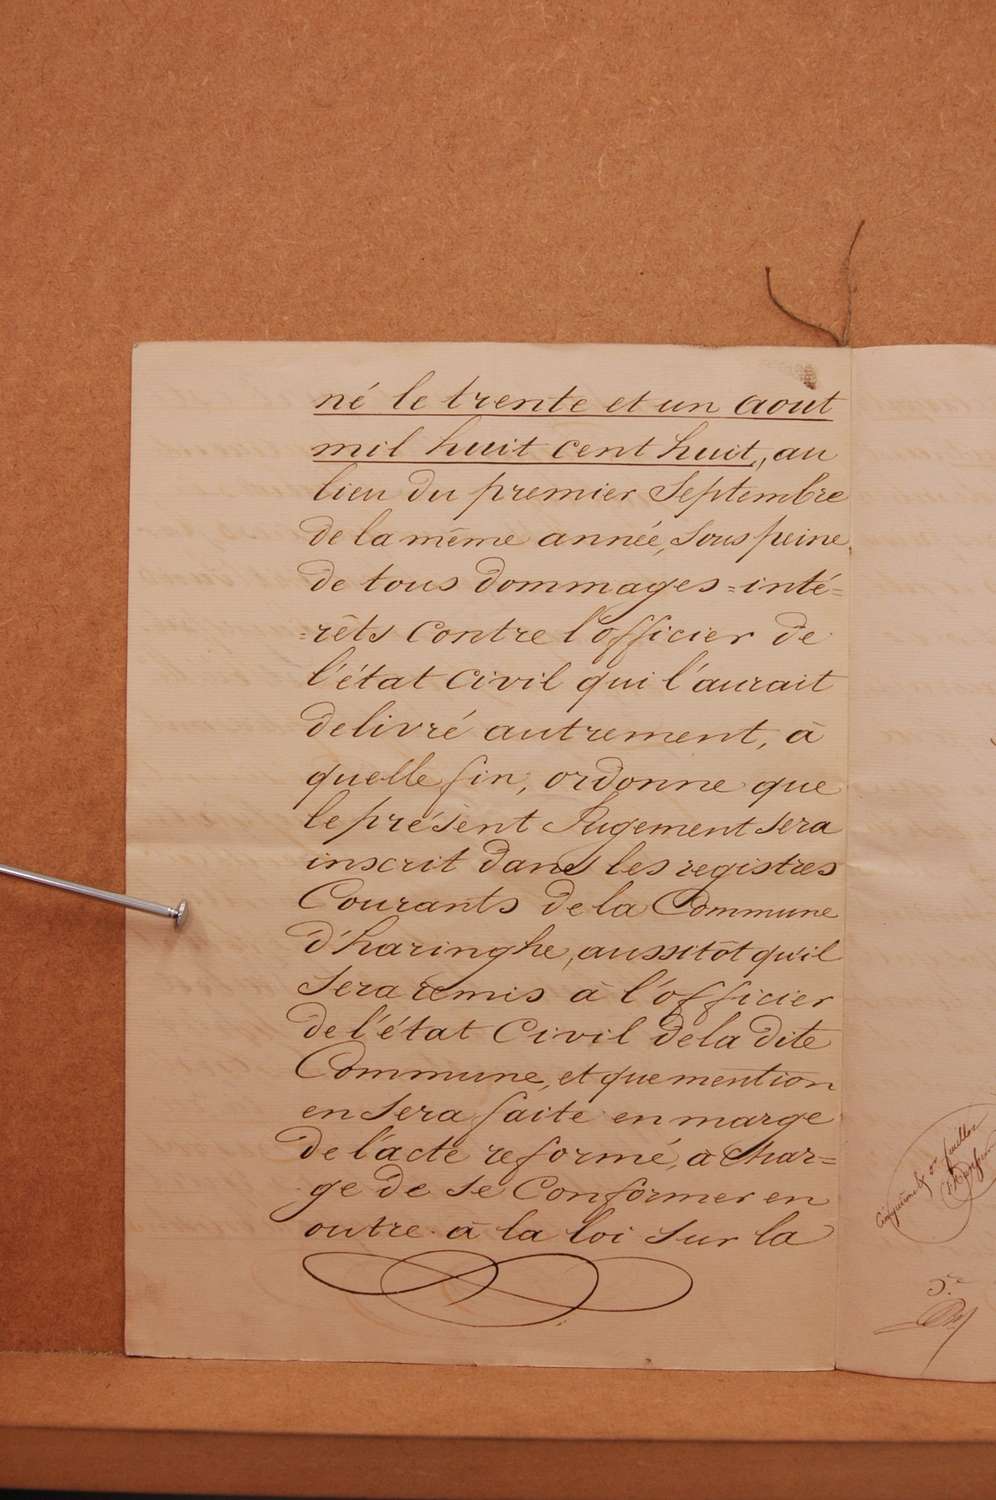 né le trente et un aout
mil huit cent huit, au
lieu du premier Septembre
de la même année, sous peine
de tous dommages=inté=
=rêts contre l'officier de
l'état civil qui l'aurait
delivré autrement, à
quelle fin, ordonne que
le présent Jugement sera
inscrit dans les registres
Courants de la Commune
d'haringhe, aussitôt qu'il
sera remis à l'officier
de l'état Civil de la dite
Commune, et que mention
en sera faite en marge
de l'acte reformé, a char=
ge de se Conformer en
outre à la loi sur la